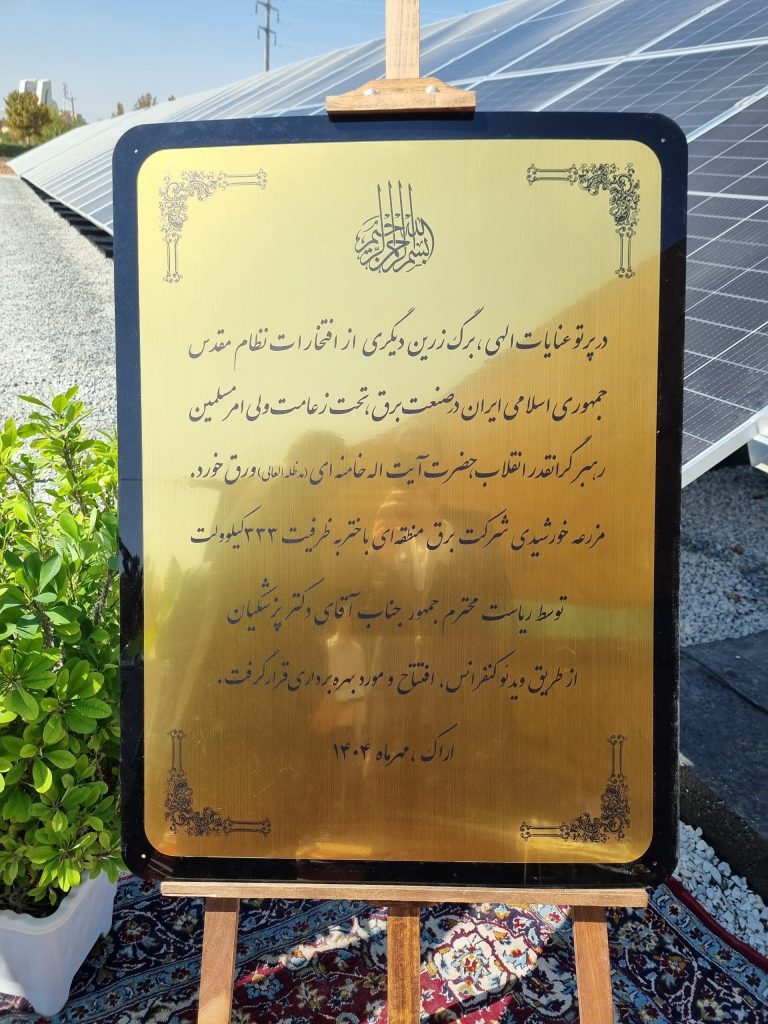 بسم الله الرحمن الرحیم
در پرتو عنایات الهی، برگ زرین دیگری از افتخارات نظام مقدس
جمهوری اسلامی ایران در صنعت برق، تحت زعامت ولی امر مسلمین
رهبر گرانقدر انقلاب، حضرت آیت اله خامنه ای (مدظله العالی) ورق خورد.
مزرعه خورشیدی شرکت برق منطقه ای باختر به ظرفیت ۳۳۳ کیلوولت
توسط ریاست محترم جمهور جناب آقای دکتر پزشکیان
از طریق ویدئو کنفرانس، افتتاح و مورد بهره برداری قرار گرفت.
اراک، مهرماه ۱۴۰۴